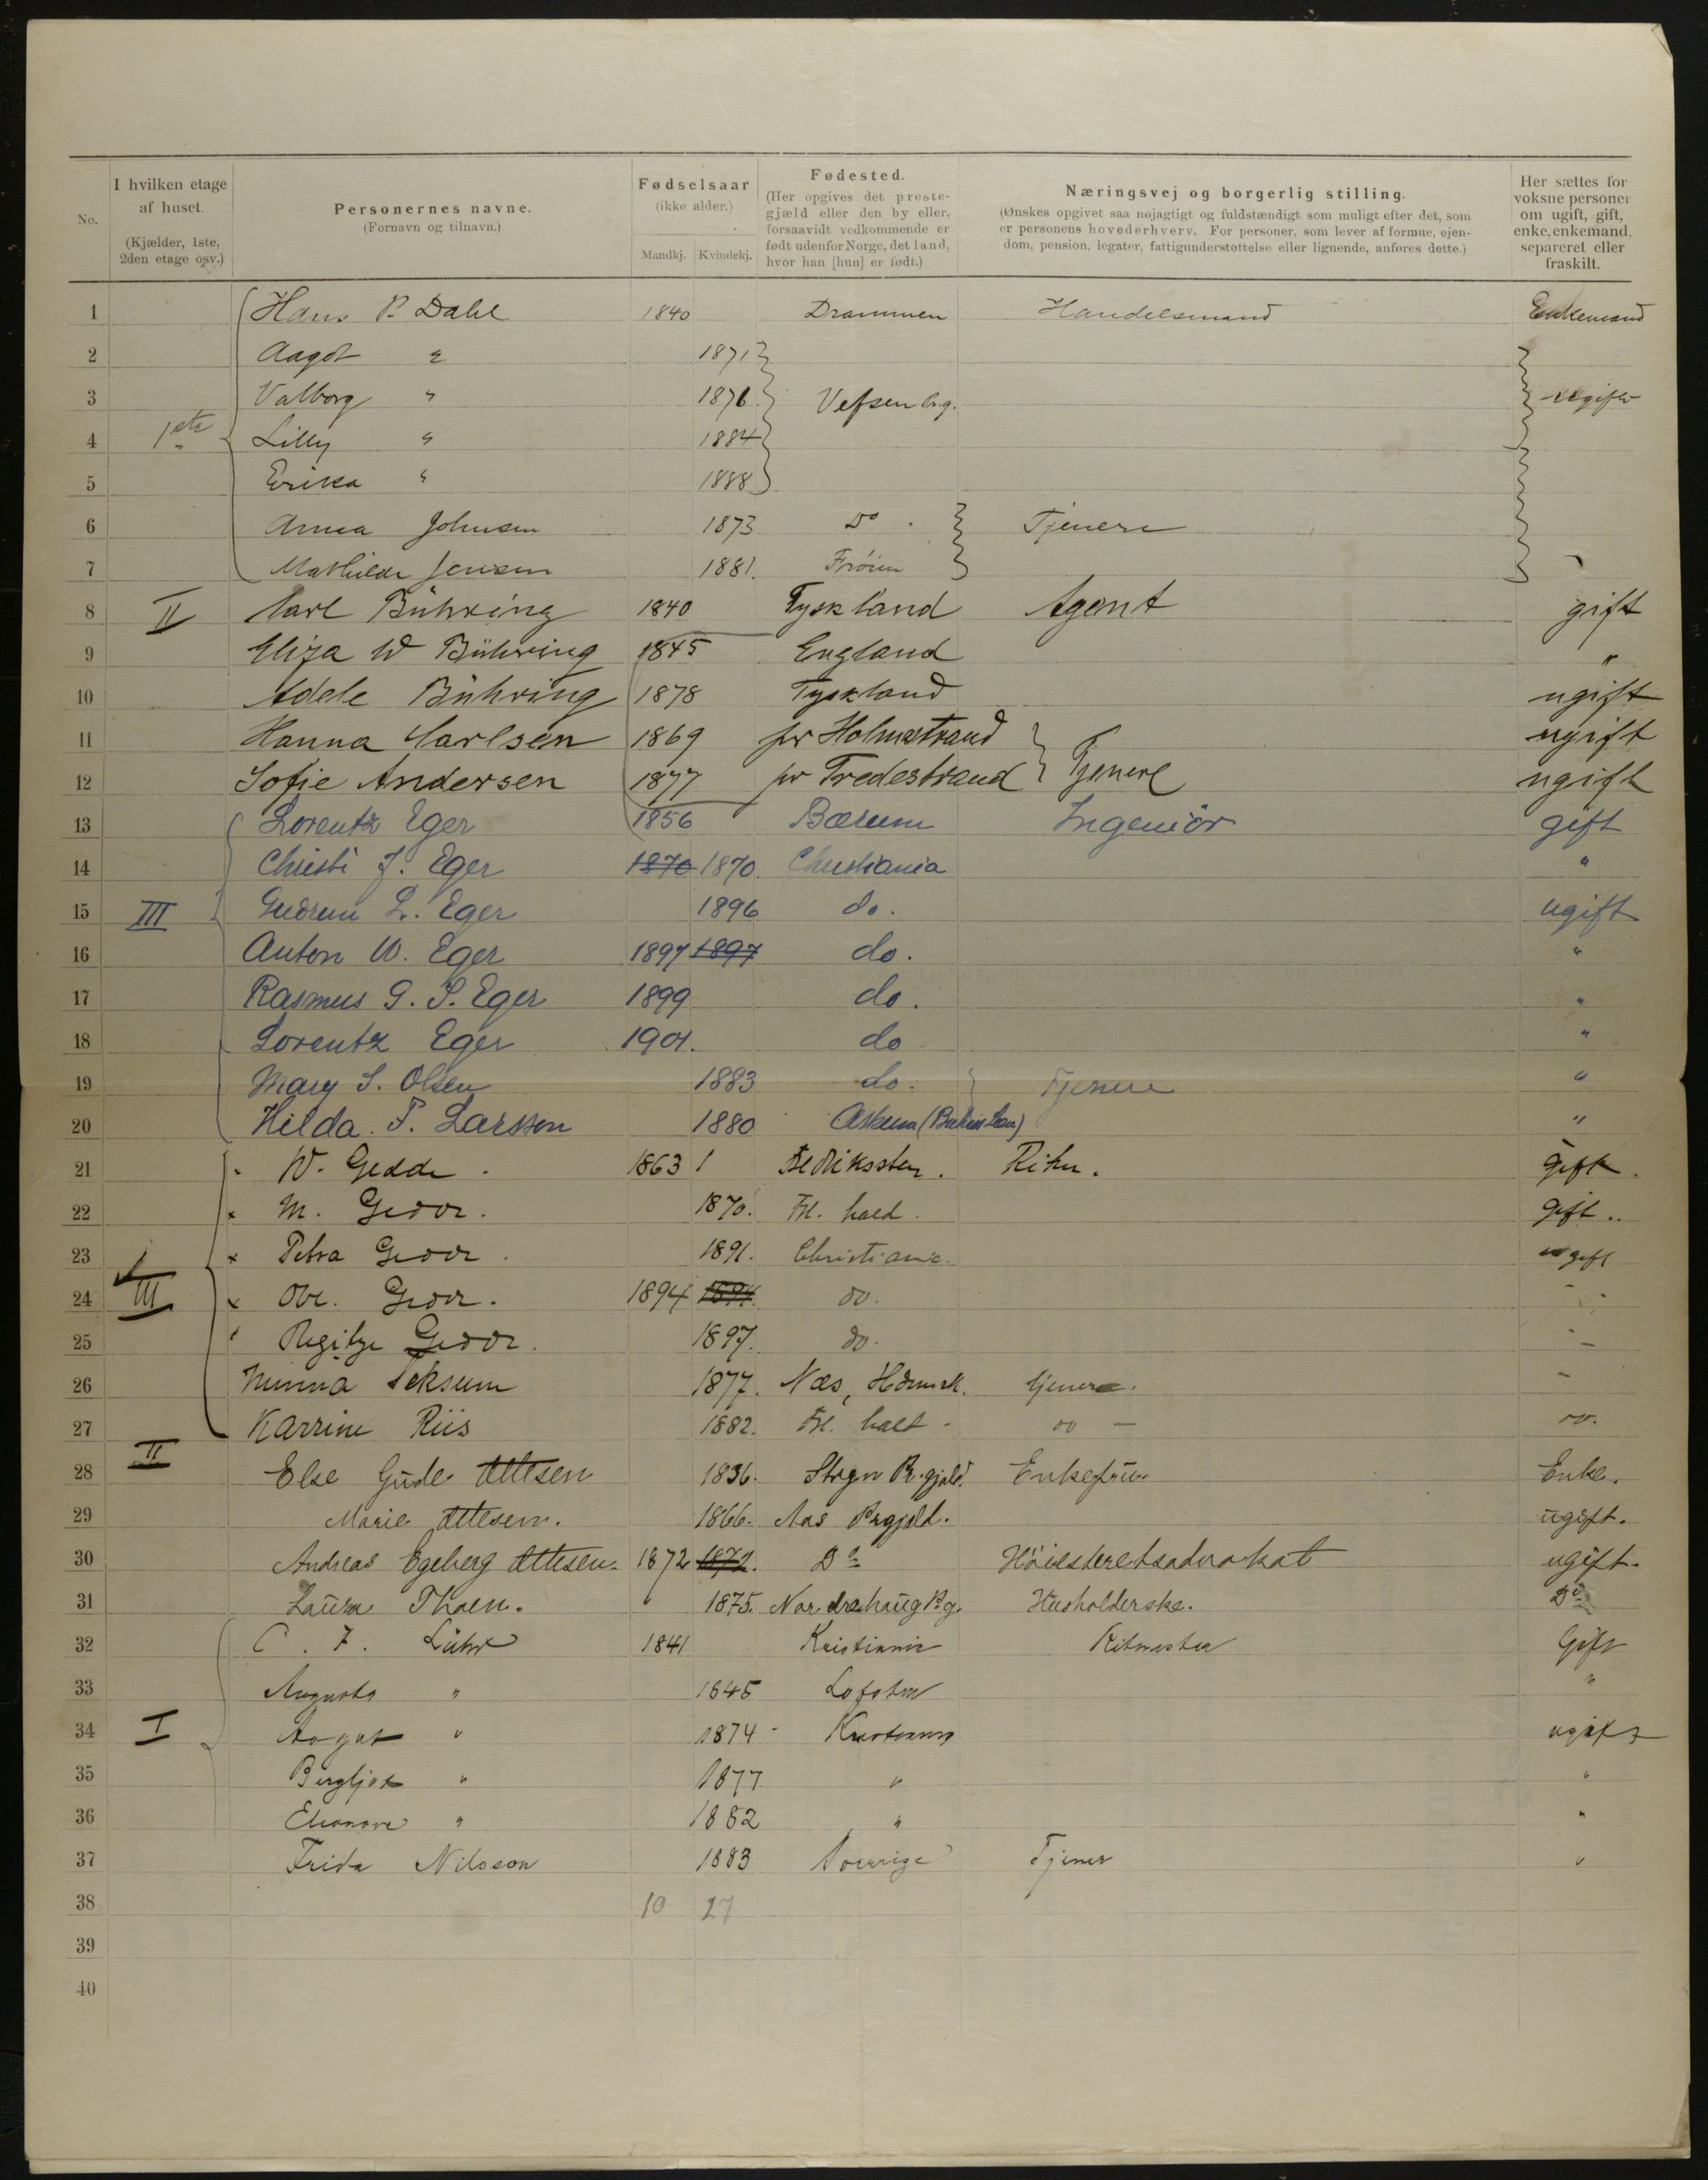 No.
I hvilken etage af huset. (Kjælder, 1ste, 2den etage osv.)
Personernes navne. (Fornavn og tilnavn.)
Fødselsaar (ikke alder.) Mandkj. Kvindekj.
Fødested. (Her opgives det prestegjæld eller den by eller, forsaavidt vedkommende er født udenfor Norge, det land, hvor han [hun] er født.)
Næringsvej og borgerlig stilling. (Ønskes opgivet saa nøjagtigt og fuldstændigt som muligt efter det, som er personens hovederhverv. For personer, som lever af formue, ejendom, pension, legater, fattigunderstøttelse eller lignende, anføres dette.)
Her sættes for voksne personer om ugift, gift, enke, enkemand, separeret eller fraskilt.
1 Hans P. Dahl 1840 Drammen Handelsmand Enkemand
2 Aagot " 1871
3 Valborg " 1876 Vefsen Prg. ugift
4 1ste Lilly " 1884
5 Erika " 1888
6 Anna Johnsen 1873 Do Tjenere
7 Mathilde Jensen 1881.
8 II Carl Bühring 1840 Tyskland Agent gift
9 Eliza W Bühring 1845 England "
10 Adele Bühring 1878 Tyskland ugift
11 Hanna Carlsen 1869 pr Holmestrand ugift
12 Sofie Andersen 1877 pr Tvedestrand Tjenere ugift
13 Lorentz Eger 1856 Bærum Ingeniör gift
14 Christi J. Eger 1870 1870. Christiania "
15 III Gudrun L. Eger 1896 do. ugift
16 Anton W. Eger 1897 1897 do. "
17 Rasmus G. S. Eger 1899 do. "
18 Lorentz Eger 1901. do "
19 Mary S. Olsen 1883 do. Tjenere "
20 Hilda F. Larsson 1880 "
21 W. Gedde 1863 1 Fredriksten. Ritm. gift.
22 M. Gedde. 1870. Fr. hald. gift.
23 Petra Gedde 1891. Christiania. ugift
24 III Ove. Gedde. 1894 1894. do. -
25 Regitze Gedde. 1897. do. -
26 1877. Næs, Hdmrk. tjenere. -
27 Karrine Riis 1882. Fr. hald - do - do.
28 II Else Gude Ottesen 1836. Pr.gjæld. Enkefrue Enke.
29 Marie Ottesen. 1866. Aas Prgjæld. ugift.
30 Andreas Egeberg Ottesen. 1872 1872. Do Höiesteretsadvokat ugift.
31 Laura Thoen. 1875. Nordrehaug Pg. Husholderske. Do
32 C. F. Lühr 1841 Kristiania Ritmester Gift
33 Augusta " 1845 Lofoten "
34 I Aagot " 1874 Kristiania ugift
35 Bergljot " 1877 " "
36 Eleonore " 1882 " "
37 Frida Nilsson 1883 Sverrige Tjener "
38 10 27
39
40